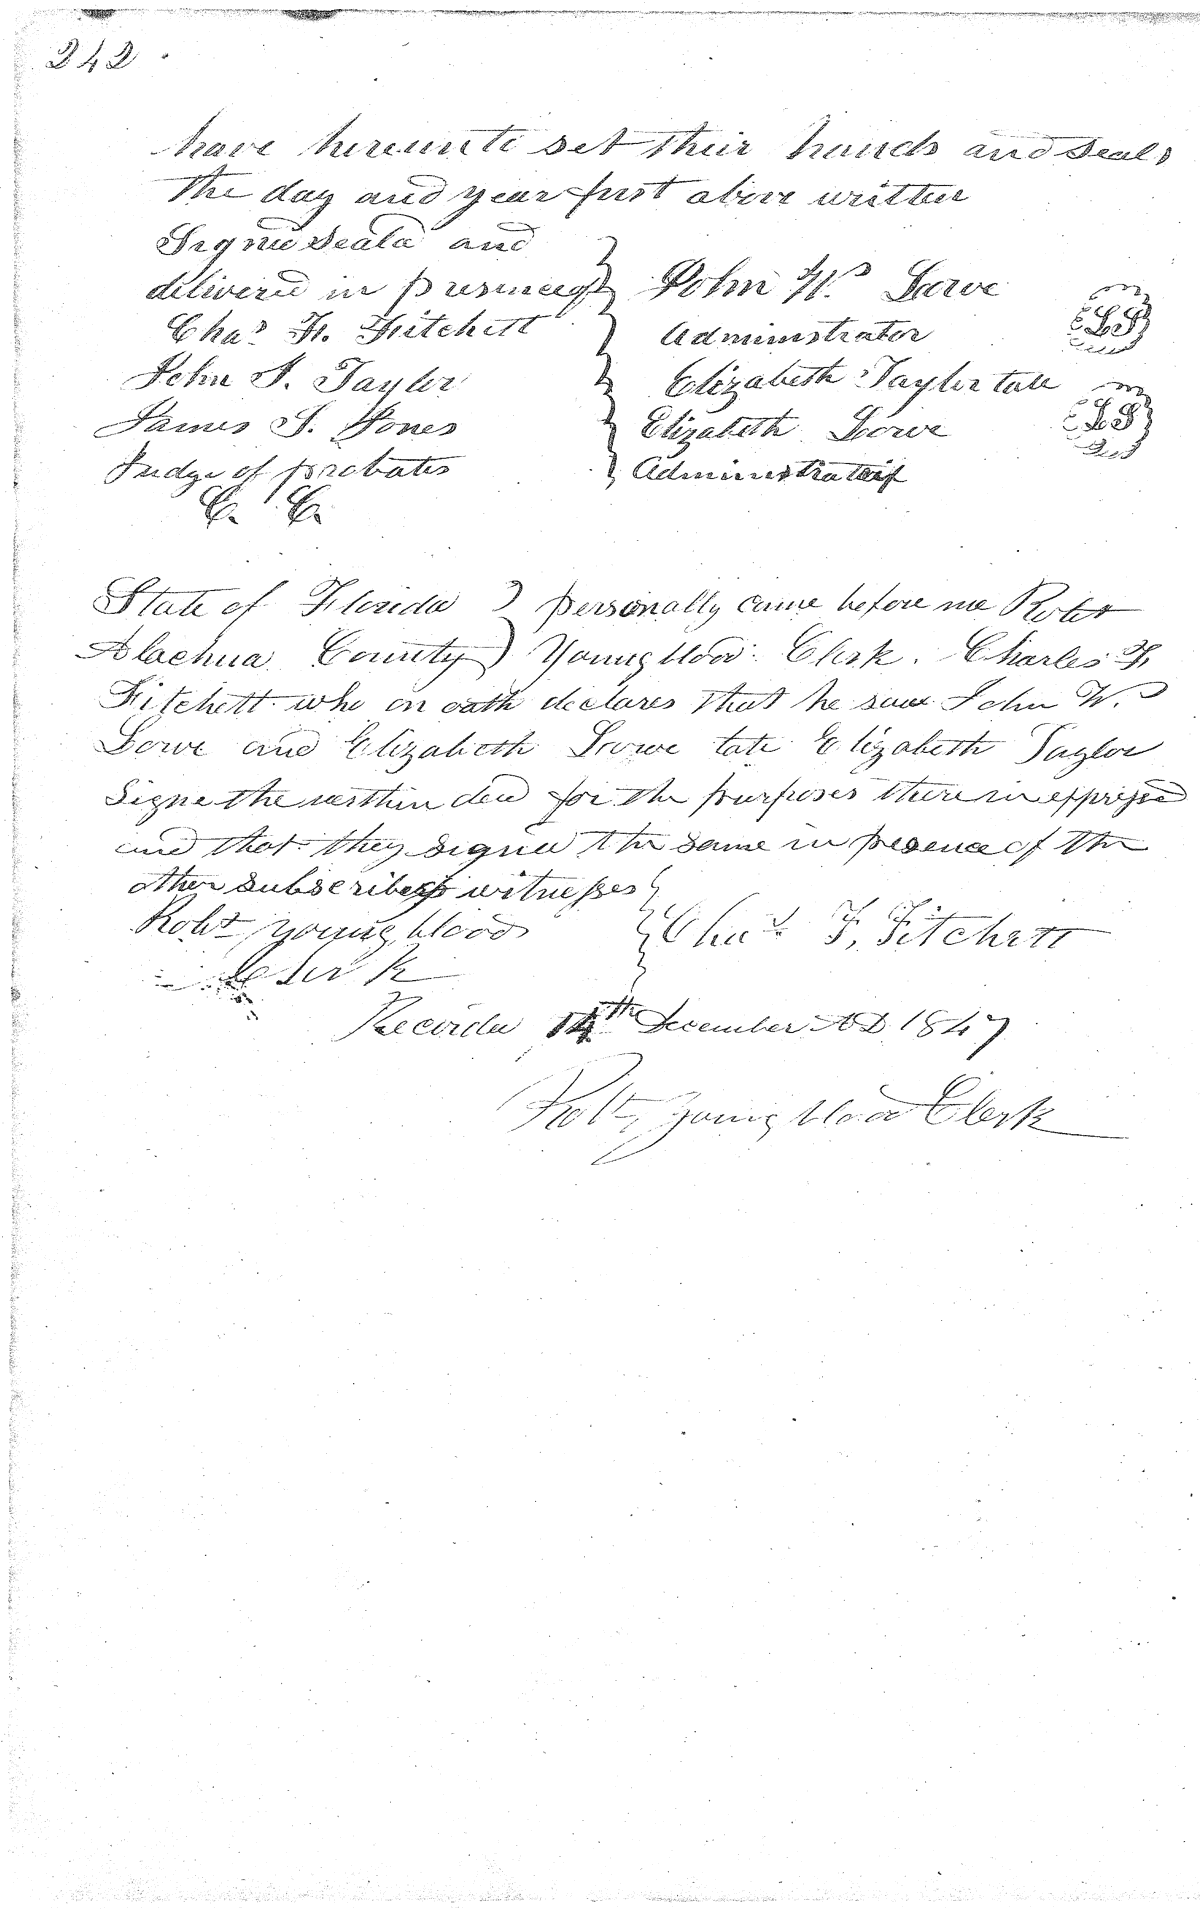 242
have hereunto set their hands and seals
the day and year first above written
Signed Seald and
delivered in presence of
Chas F. Fitchett
John S. Taylor
James S. Jones
Judge of probates
C. C.
John W. Lowe
Administrator LS
Elizabeth Taylor late
Elizabeth Lowe LS
Administratrix
State of Florida personally came before me Robt
Alachua County Youngblood Clerk. Charles F
Fitchett who on oath declares that he saw John W.
Lowe and Elizabeth Lowe late Elizabeth Taylor
Signe the within deed for the purposes therein expressed
and that they signed the same in presence of the
other subscribeg witnesses
Robt Youngblood
Clerk
Chas F. Fitchett
Recorded 14th December AD 1847
Robt Youngblood Clerk